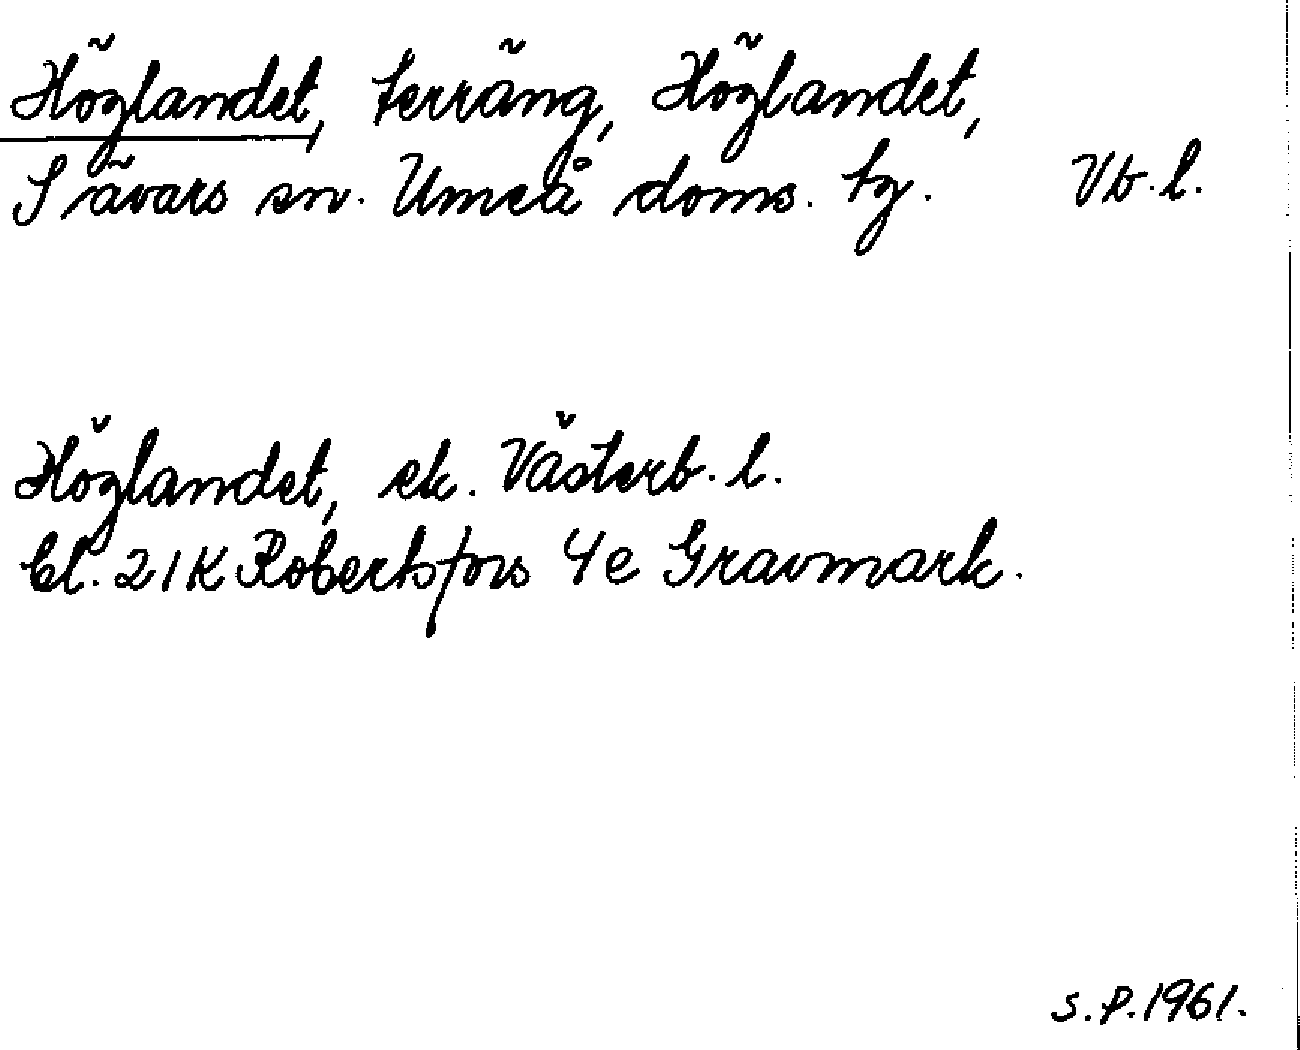 Höglandet, terräng, Höglandet,
Sävars sn. Umeå doms. tg. Vb. l.
Höglandet, ek. Västerb. l.
Bl. 21K Robertsfors 4e Gravmark.
S.P. 1961.